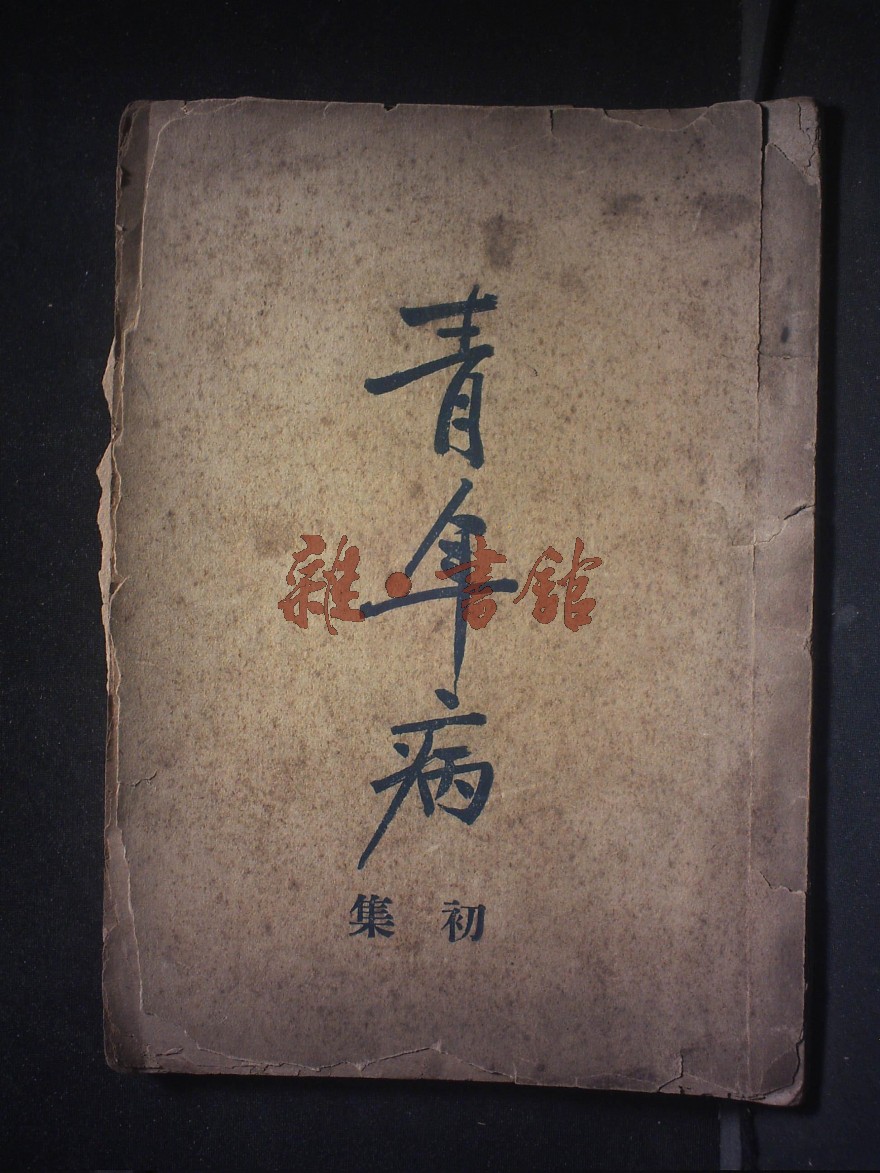 青年病
初集
雜·書館